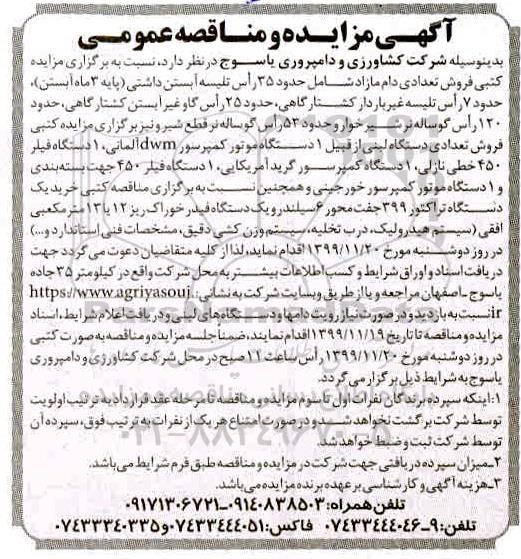 آگهی مزایده و مناقصه عمومی
بدینوسیله شرکت کشاورزی و دامپروری یاسوج در نظر دارد، نسبت به برگزاری مزایده
کتبی فروش تعدادی دام مازاد شامل حدود ۳۵ رأس تلیسه آبستن داشتی (پایه ۳ ماه آبستن)،
حدود ۷ رأس تلیسه غیر باردار کشتارگاهی، حدود ۲۵ رأس گاو غیر آبستن کشتارگاهی، حدود
۱۲۰ رأس گوساله نر شیرخوار و حدود ۵۳ رأس گوساله نر قطع شیر و نیز برگزاری مزایده کتبی
فروش تعدادی دستگاه لبنی از قبیل ۱ دستگاه موتور کمپرسور dwm آلمانی، ۱ دستگاه فیلر
۴۵۰ خطی نازلی، ۱ دستگاه کمپرسور گرید آمریکایی، ۱ دستگاه فیلر ۴۵۰ جهت بسته‌بندی
و ۱ دستگاه موتور کمپرسور خورجینی و همچنین نسبت به برگزاری مناقصه کتبی خرید یک
دستگاه تراکتور ۳۹۹ جفت محور ۶ سیلندر و یک دستگاه فیدر خوراک ریز ۱۲ یا ۱۳ متر مکعبی
افقی (سیستم هیدرولیک، درب تخلیه، سیستم وزن کشی دقیق، مشخصات فنی استاندارد و...)
در روز دوشنبه مورخ ۱۳۹۹/۱۱/۲۰ اقدام نماید، لذا از کلیه متقاضیان دعوت می‌گردد جهت
دریافت اسناد و اوراق شرایط و کسب اطلاعات بیشتر به محل شرکت واقع در کیلومتر ۳۵ جاده
یاسوج - اصفهان مراجعه و یا از طریق وبسایت شرکت به نشانی: https://www.agriyasouj.
ir نسبت به بازدید و در صورت نیاز رویت دامها و دستگاه‌های لبنی و دریافت اعلام شرایط، اسناد
مزایده و مناقصه تا تاریخ ۱۳۹۹/۱۱/۱۹ اقدام نمایند، ضمنا جلسه مزایده و مناقصه به صورت کتبی
در روز دوشنبه مورخ ۱۳۹۹/۱۱/۲۰ رأس ساعت ۱۱ صبح در محل شرکت کشاورزی و دامپروری
یاسوج به شرایط ذیل برگزار می‌گردد.
۱: اینکه سپرده برندگان نفرات اول تا سوم مزایده و مناقصه تا مرحله عقد قرارداد به ترتیب اولویت
توسط شرکت برگشت نخواهد شد و در صورت امتناع هر یک از نفرات به ترتیب فوق، سپرده آن
توسط شرکت ثبت و ضبط خواهد شد.
۲- میزان سپرده دریافتی جهت شرکت در مزایده و مناقصه طبق فرم شرایط می‌باشد.
۳- هزینه آگهی و کارشناسی بر عهده برنده مزایده می‌باشد.
تلفن همراه: ۰۹۱۴۰۸۳۸۵۰۳-۰۹۱۷۱۳۰۶۷۲۱
تلفن: ۹-۰۷۴۳۳۴۴۴۰۴۶ فاکس: ۰۷۴۳۳۴۴۴۰۵۱ و ۰۷۴۳۳۳۴۰۳۳۵